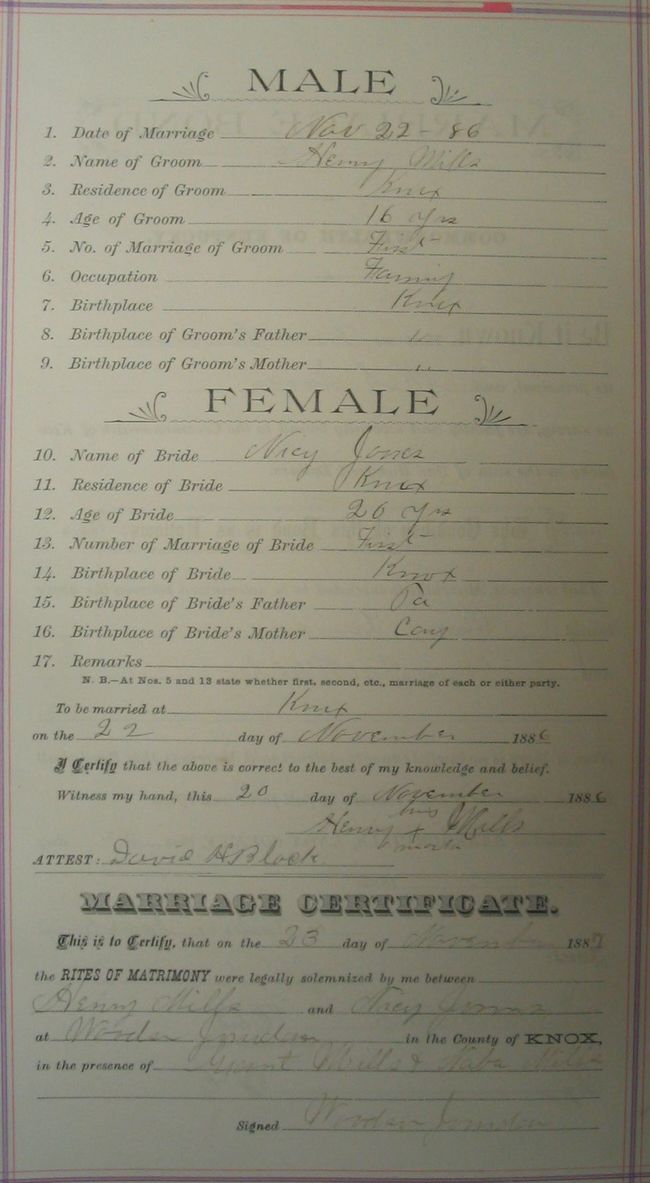 MALE
1. Date of Marriage Nov 22 - 86
2. Name of Groom Henry Mills
3. Residence of Groom Knox
4. Age of Groom 16 yrs
5. No. of Marriage of Groom First
6. Occupation Faming
7. Birthplace Knox
8. Birthplace of Groom's Father "
9. Birthplace of Groom's Mother "
FEMALE
10. Name of Bride Nicy Jones
11. Residence of Bride Knox
12. Age of Bride 20 yrs
13. Number of Marriage of Bride First
14. Birthplace of Bride Knox
15. Birthplace of Bride's Father Va
16. Birthplace of Bride's Mother
17. Remarks
N. B.—At Nos. 5 and 13 state whether first, second, etc., marriage of each or either party.
To be married at Knox
on the 22 day of November 1886
I Certify that the above is correct to the best of my knowledge and belief.
Witness my hand, this 20 day of November 1886
Henry his x mark Mills
ATTEST: David H Black
MARRIAGE CERTIFICATE.
This is to Certify, that on the 23 day of November 188
the RITES OF MATRIMONY were legally solemnized by me between
Henry Mills and Nicy Jones
at in the County of KNOX,
in the presence of Mills & Mills
Signed